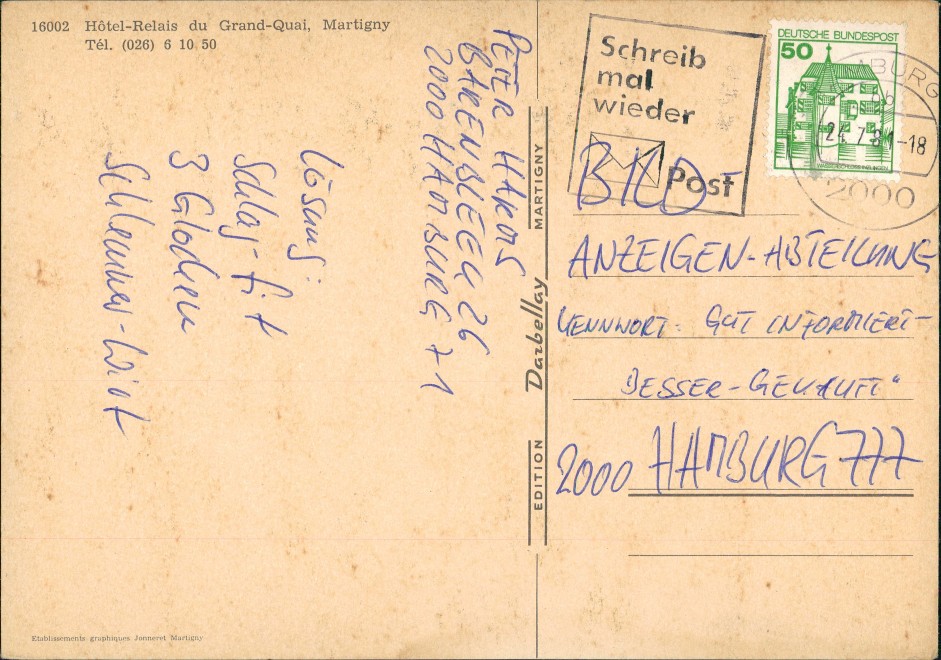 16002 Hôtel-Relais du Grand-Quai, Martigny
Tél. (026) 6 10 50
Lösung:
Schlaf-fit
3 Glocken
Schlemmer-Wirt
PETER HARMS
BARENBLEEK 26
2000 HAMBURG 71
MARTIGNY
Darbellay
EDITION
Schreib
mal
wieder
Post
DEUTSCHE BUNDESPOST
50
2000
BILD-
ANZEIGEN-ABTEILUNG
KENNWORT: GUT INFORMIERT-
BESSER-GEKAUFT"
2000 HAMBURG 777
Etablissements graphiques Jonneret Martigny